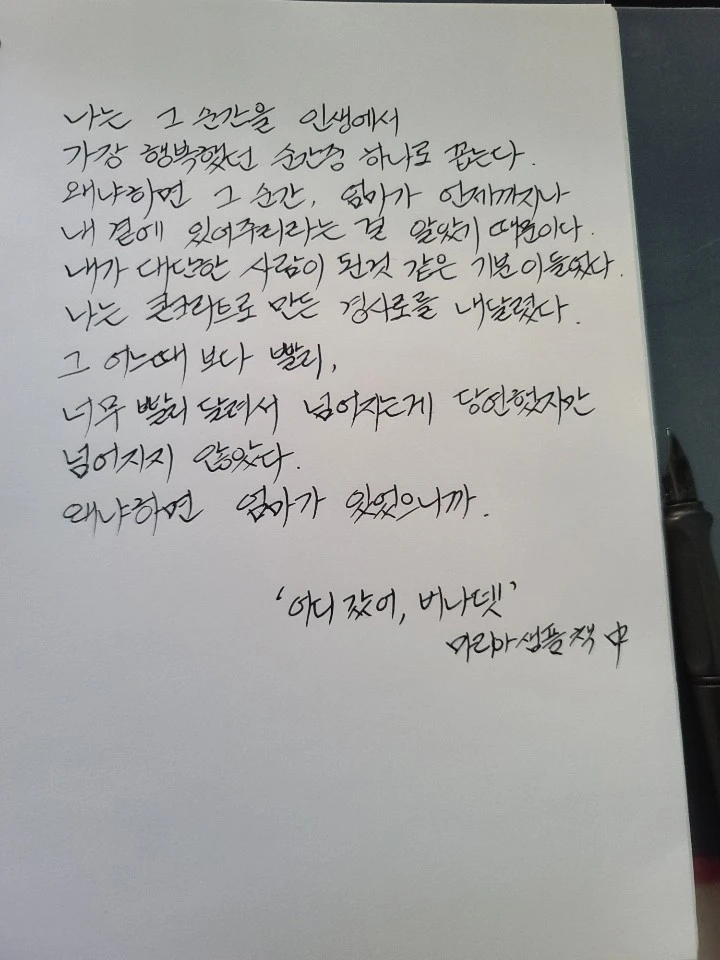 나는 그 순간을 인생에서
가장 행복했던 순간중 하나로 꼽는다.
왜냐하면 그 순간, 엄마가 언제까지나
내 곁에 있어주리라는 걸 알았기 때문이다.
내가 대단한 사람이 된것 같은 기분이들었다.
나는 콘크리트로 만든 경사로를 내달렸다.
그 어느때 보다 빨리,
너무 빨리 달려서 넘어지는게 당연했지만
넘어지지 않았다.
왜냐하면 엄마가 있었으니까.
'어디 갔어, 버나뎃'
마리아 샘플 책 中